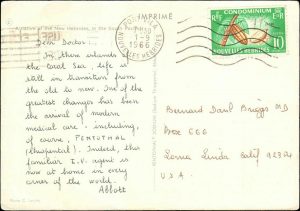 IMPRIME
CONDOMINIUM
RF
E II R
10
NOUVELLES HEBRIDES
1-9
1966
Dear Doctor:
In these islands
the Coral Sea, life is
still in transition from
the old to new. One of the
greatest changes has been
the arrival of modern
medical care - including,
of course, PENTOTHAL
(thiopental). Indeed, this
familiar I.V. agent is
now at home in every
corner of the world.
Abbott
Bernard Daul Briggs MD
Box 666
Loma Linda Calif 92354
U.S.A.